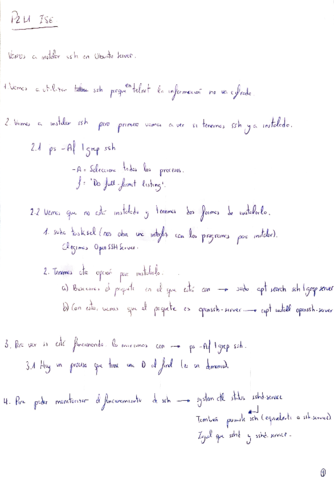 P2L1 ISE
Vamos a instalar ssh en Ubuntu Server.
1. Vamos a utilizar ssh porque en telnet la información no va cifrada
2. Vamos a instalar ssh pero primero vamos a ver si tenemos ssh ya instalado.
2.1 ps -Af | grep ssh
-A = Selecciona todos los procesos.
f = "Do full-format listing"
2.2 Vemos que no está instalado y tenemos dos formas de instalarlo.
1. sudo tasksel (nos abre una con los programas para instalar).
Elegimos OpenSSH Server.
2. Tenemos otra opción para instalarlo.
a) Buscamos el paquete en el que está con → sudo apt search ssh | grep server
b) Con esto, vemos que el paquete es openssh-server → apt install openssh-server
3. Por ver si está funcionando lo con → ps -Af | grep ssh.
3.1 Hay un proceso que tiene una D al final (es un demonio).
4. Para poder monitorizar el funcionamiento de ssh → systemctl status sshd.service
También ssh (equivalente a ssh.service)
Igual que sshd y sshd.service.
1